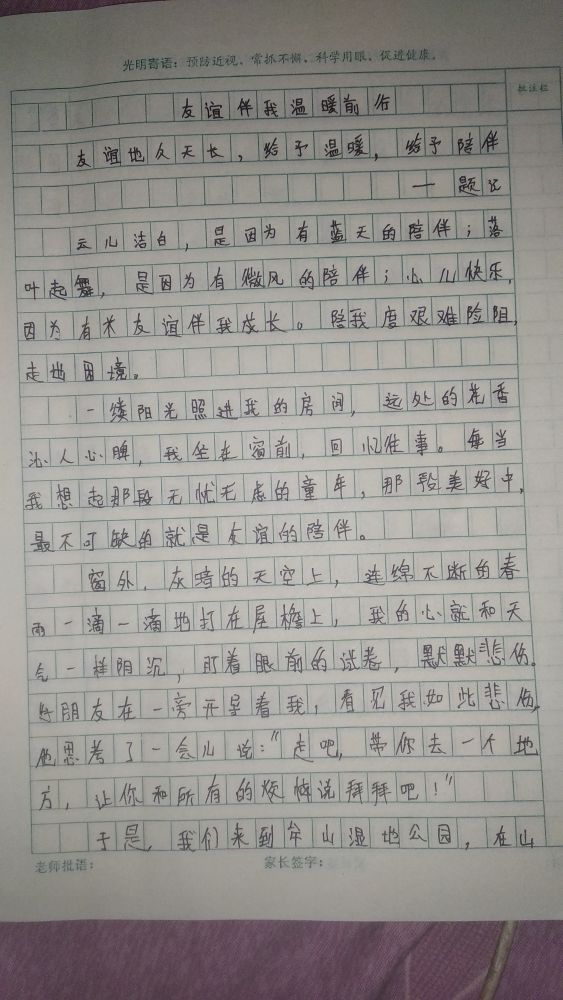 光明寄语：预防近视，常抓不懈，科学用眼，促进健康。
批注栏
友谊伴我温暖前行
友谊地久天长，给予温暖，给予陪伴
— 题记
云儿洁白，是因为有蓝天的陪伴；落
叶起舞，是因为有微风的陪伴；心儿快乐，
因为有 友谊伴我成长。陪我度艰难险阻，
走出困境。
一缕阳光照进我的房间，远处的花香
沁人心脾，我坐在窗前，回忆往事。每当
我想起那段无忧无虑的童年，那段美好中，
最不可缺的就是友谊的陪伴。
窗外，灰暗的天空上，连绵不断的春
雨一滴一滴地打在屋檐上，我的心就和天
气一样阴沉，盯着眼前的试卷，默默悲伤。
好朋友在一旁开导着我，看见我如此悲伤，
他思考了一会儿说：“走吧，带你去一个地
方，让你和所有的烦恼说拜拜吧！”
于是，我们来到 山湿地公园，在山
老师批语：
家长签字：